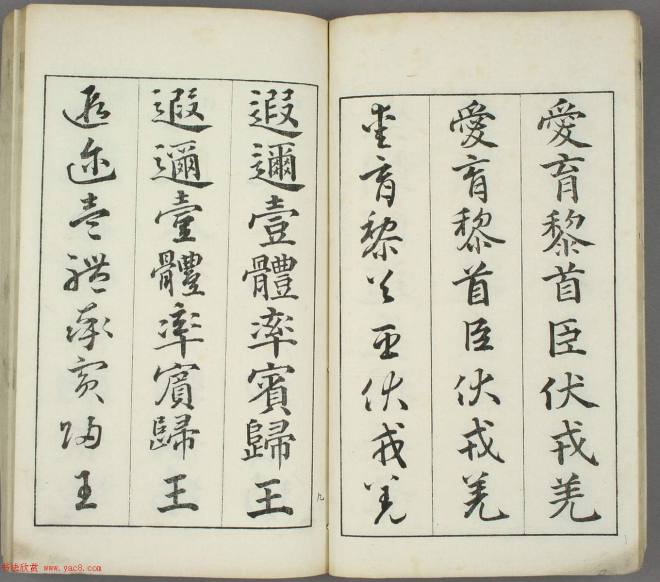 愛育黎首臣伏戎羌
愛育黎首臣伏戎羌
愛育黎首臣伏戎羌
遐邇壹體率賓歸王
遐邇壹體率賓歸王
遐邇壹體率賓歸王
九
书法欣赏 www.yac8.com